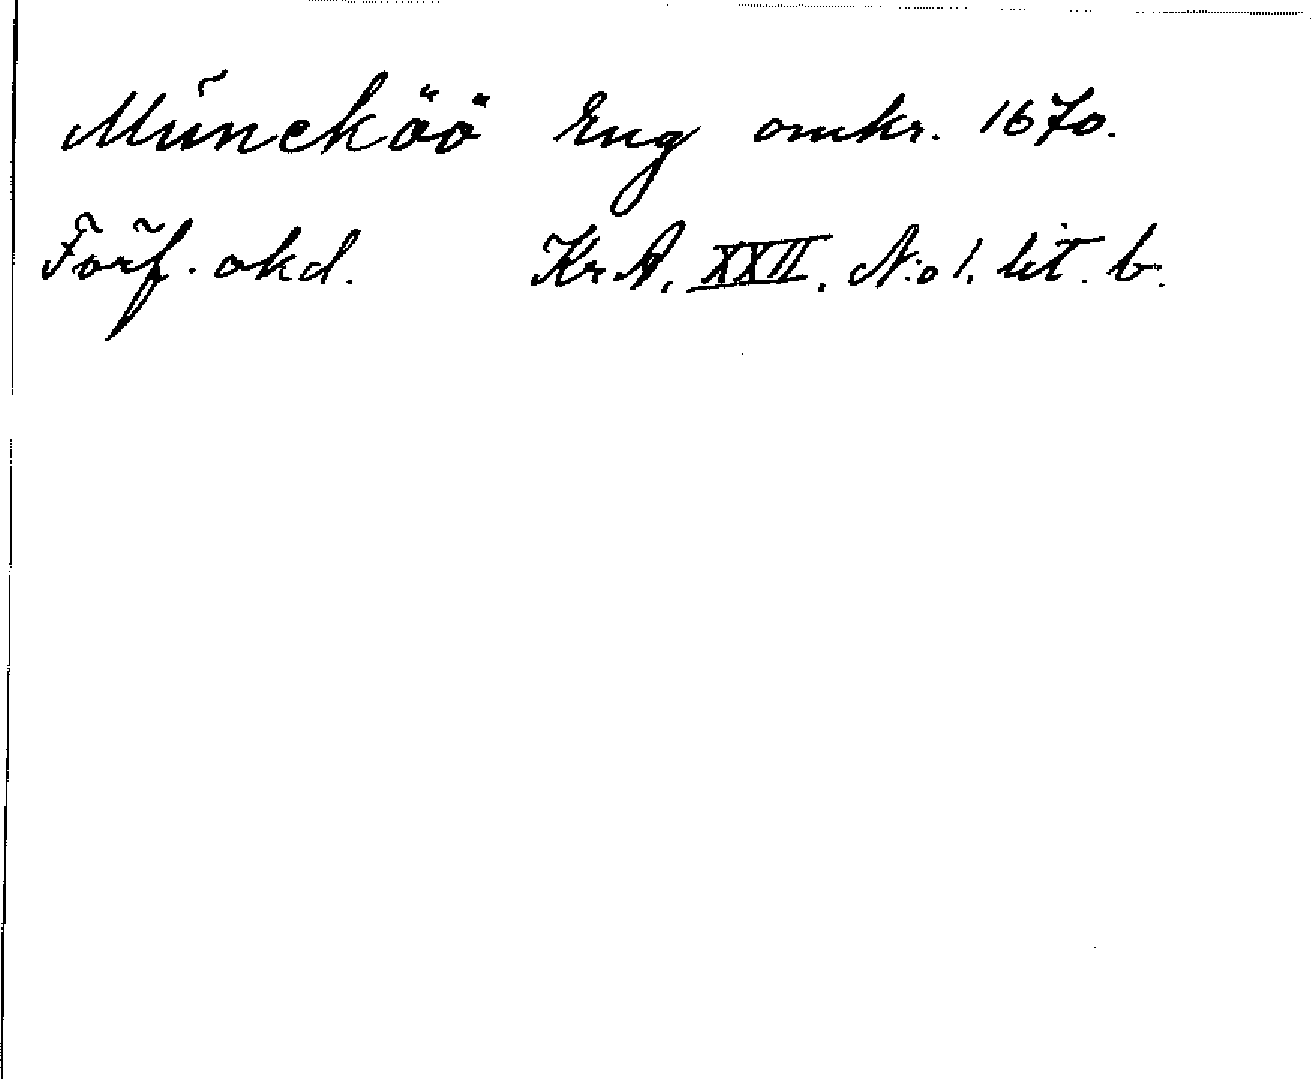 Müncköö Eng omkr. 1670.
Förf. okd. Kr. A. XXII. N:o 1. lit. b.